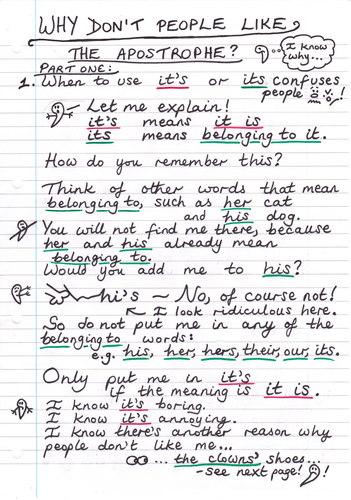 WHY DON'T PEOPLE LIKE,
THE APOSTROPHE?
I know
why...
PART ONE:
1. When to use it's or its confuses
people !
Let me explain!
it's means it is
its means belonging to it.
How do you remember this?
Think of other words that mean
belonging to, such as her cat
and his dog.
You will not find me there, because
her and his already mean
belonging to.
Would you add me to his?
hi's ~ No, of course not!
I look ridiculous here.
So do not put me in any of the
belonging to words:
e.g. his, her, hers, their, our, its.
Only put me in it's
if the meaning is it is.
I know it's boring.
I know it's annoying.
I know there's another reason why
people don't like me...
... the clowns' shoes...
- See next page! !